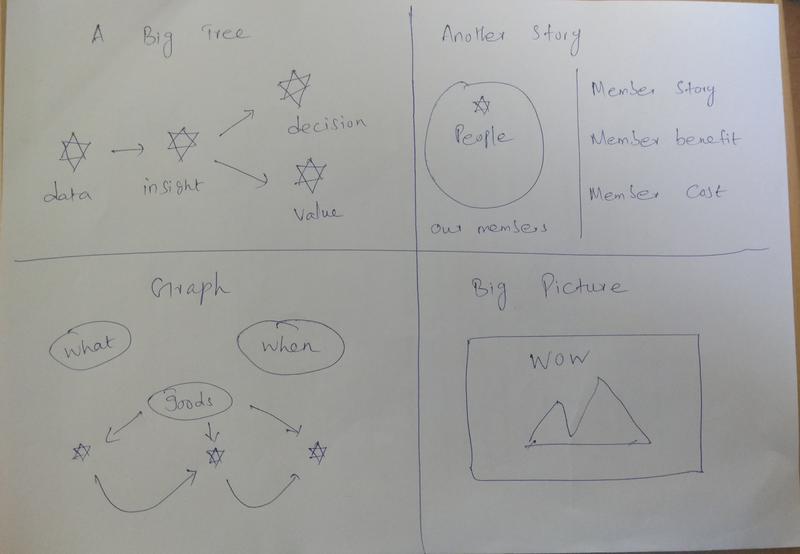 A Big Tree
data
insight
decision
value
Another Story
People
our members
Member Story
Member benefit
Member Cost
Graph
what
when
goods
Big Picture
WOW